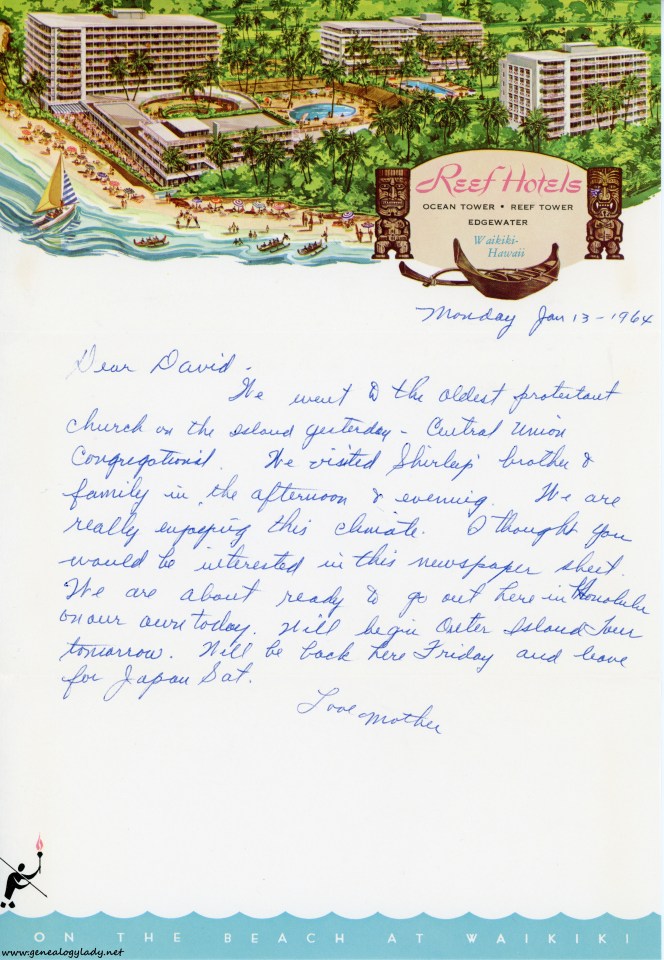 Reef Hotels
OCEAN TOWER • REEF TOWER
EDGEWATER
Waikiki-
Hawaii
Monday Jan 13 - 1964
Dear David -
We went to the oldest protestant
church on the island yesterday - Central Union
Congregational. We visited Shirley's brother &
family in the afternoon & evening. We are
really enjoying this climate. I thought you
would be interested in this newspaper sheet.
We are about ready to go out here in Honolulu
on our own today. Will begin Outer Island Tour
tomorrow. Will be back here Friday and leave
for Japan Sat.
Love Mother
ON THE BEACH AT WAIKIKI
www.genealogylady.net